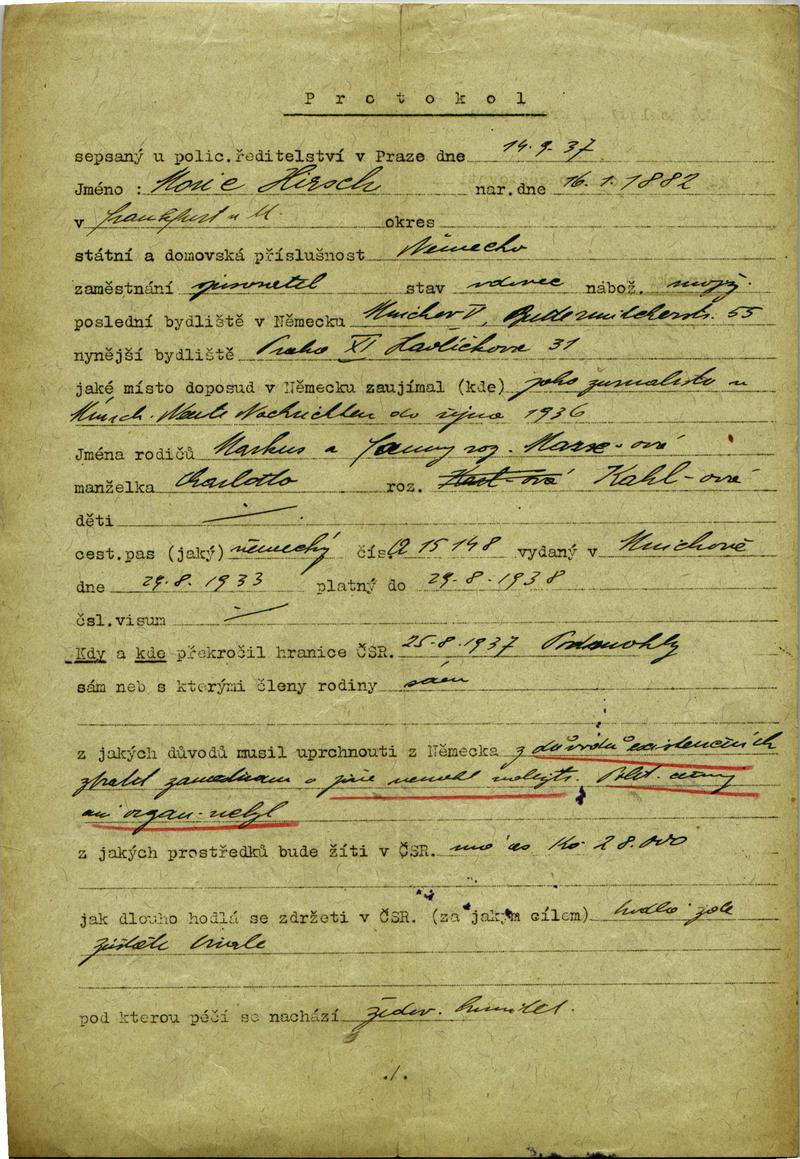 Protokol
sepsaný u polic.ředitelství v Praze dne 14.9.37.
Jméno : Moric Hirsch nar.dne 16.1.1882
v Frankfurt n M. okres
státní a domovská příslušnost Německo
zaměstnání spisovatel stav vdovec nábož. mojž.
poslední bydliště v Německu 55
nynější bydliště Praha XI Havlíčkova 31
jaké místo doposud v Německu zaujímal (kde) jako žurnalista u
Münch. Neuste Nachrichten do října 1936
Jména rodičů Markus a Fanny roz. Marx-ová
manželka Charlotta roz. Kahl-ová
děti /
cest.pas (jaký) německý čís. 15148 vydaný v Mnichově
dne 29.8.1933 platný do 29.8.1938
čsl.visum /
Kdy a kde překročil hranice ČSR. 25.8.1937 Podmokly
sám neb s kterými členy rodiny sám
z jakých důvodů musil uprchnouti z Německa z důvodů existenčních
ztratil zaměstnání a jiné nemohl Polit. činný
ani organ. nebyl
z jakých prostředků bude žíti v ČSR. má as Kč 28.000
jak dlouho hodlá se zdržeti v ČSR. (za jakým cílem) hodlá zde
zůstati trvale
pod kterou péčí se nachází židov. komitét.
./.